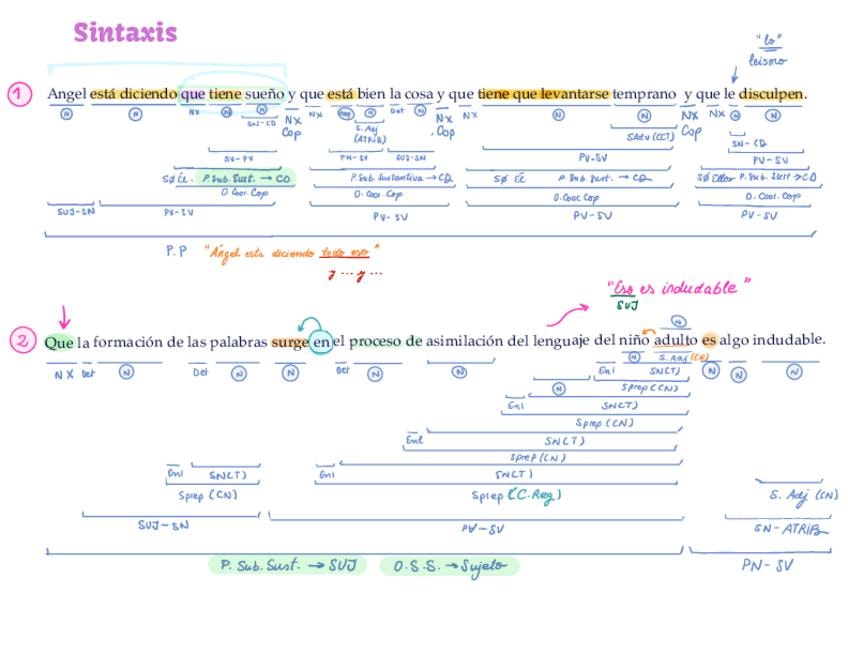 Sintaxis
"lo"
leísmo
1 Angel está diciendo que tiene sueño y que está bien la cosa y que tiene que levantarse temprano y que le disculpen.
N N NX N N NX Cop NX N Det N NX Cop NX N N NX Cop NX N N
SN-CD S. Adj (ATRIB) SAdv (CCT) SN-CD
SV-PV PN-SV SUJ-SN PV-SV PV-SV
SØ Él. P. Sub. Sust. → CD P. Sub. Sustantiva → CD SØ Él P. Sub. Sust. → CD SØ Ellos P. Sub. Sust → CD
O Coor. Cop O. Coor. Cop O. Coor. Cop O. Coor. Cop
SUJ-SN PV-SV PV-SV PV-SV PV-SV
P.P "Ángel esta diciendo todo eso"
y ... y ...
"Eso es indudable"
SUJ
N
2 Que la formación de las palabras surge en el proceso de asimilación del lenguaje del niño adulto es algo indudable.
N S. Adj (CN)
NX Det N Det N N Det N N Enl SN(T) N N N
N Sprep (CN)
Enl SN(T)
Sprep (CN)
Enl SN(T)
Sprep (CN)
Enl SN(T) Enl SN(T)
Sprep (CN) Sprep (C. Reg) S. Adj (CN)
SUJ-SN PV-SV SN-ATRIB
P. Sub. Sust. → SUJ O.S.S. → Sujeto PN-SV